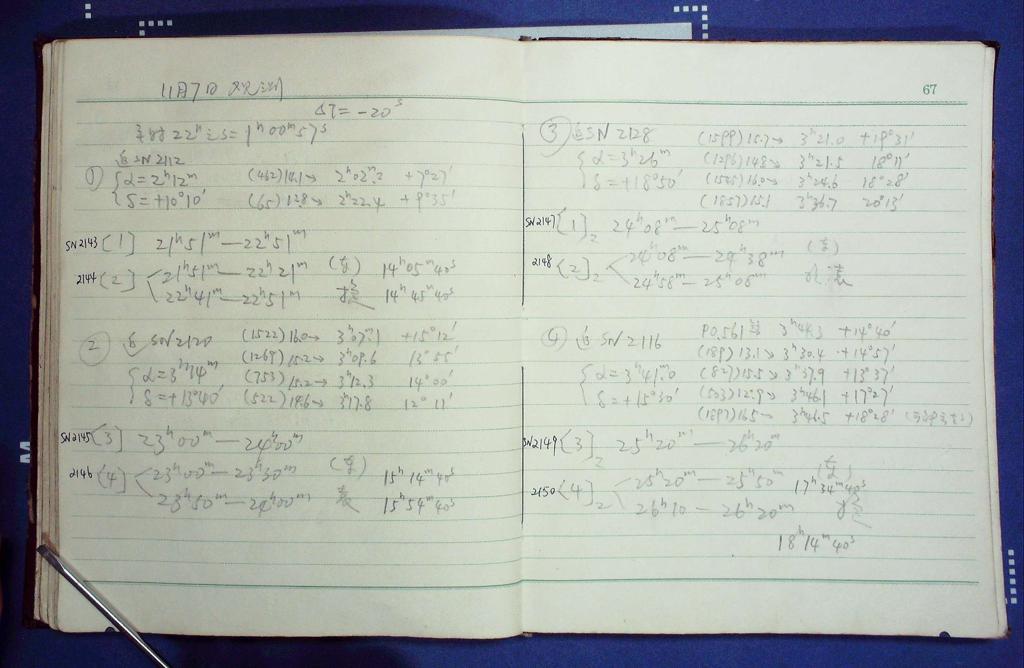 11月7日 观测
ΔT = -20ˢ
22ʰ S = 1ʰ00ᵐ57ˢ
① 追SN2112
α=2ʰ12ᵐ (462)14.1→ 2ʰ02ᵐ.2 +7°27′
δ=+10°10′ (65)12.8→ 2ʰ22.4 +9°35′
SN2143 [1] 21ʰ51ᵐ—22ʰ51ᵐ
2144 [2] 21ʰ51ᵐ—22ʰ21ᵐ 14ʰ05ᵐ40ˢ
22ʰ41ᵐ—22ʰ51ᵐ 14ʰ45ᵐ40ˢ
② 追SN2120 (1522)16.0→ 3ʰ07ᵐ.1 +15°12′
(1269)15.2→ 3ʰ09.6 13°55′
α=3ʰ14ᵐ (753)15.2→ 3ʰ12.3 14°00′
δ=+13°40′ (522)14.6→ 3ʰ17.8 12°11′
SN2145 [3] 23ʰ00ᵐ—24ʰ00ᵐ
2146 [4] 23ʰ00ᵐ—23ʰ30ᵐ 15ʰ14ᵐ40ˢ
23ʰ50ᵐ—24ʰ00ᵐ 15ʰ54ᵐ40ˢ
67
③ 追SN2128 (1599)15.7→ 3ʰ21.0 +19°31′
α=3ʰ26ᵐ (1296)14.8→ 3ʰ21.5 18°11′
δ=+18°50′ (1545)16.0→ 3ʰ24.6 18°28′
(1857)15.1 3ʰ36.7 20°13′
SN2147 [1]₂ 24ʰ08ᵐ—25ʰ08ᵐ
2148 [2]₂ 24ʰ08ᵐ—24ʰ38ᵐ
24ʰ58ᵐ—25ʰ08ᵐ
④ 追SN2116 P0.561 3ʰ44.3 +14°40′
(189)13.1→ 3ʰ30.4 +14°57′
α=3ʰ41ᵐ.0 (827)15.5→ 3ʰ37.9 +13°37′
δ=+15°30′ (503)12.9→ 3ʰ46.1 +17°27′
(1897)16.5→ 3ʰ46.5 +18°28′
SN2149 [3]₂ 25ʰ20ᵐ—26ʰ20ᵐ
2150 [4]₂ 25ʰ20ᵐ—25ʰ50ᵐ 17ʰ34ᵐ40ˢ
26ʰ10—26ʰ20ᵐ
18ʰ14ᵐ40ˢ